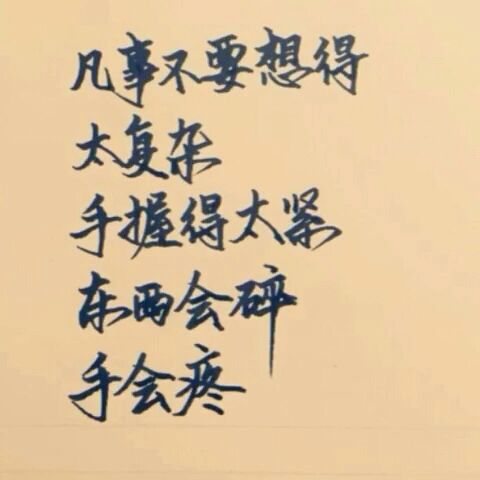 凡事不要想得
太复杂
手握得太紧
东西会碎
手会疼